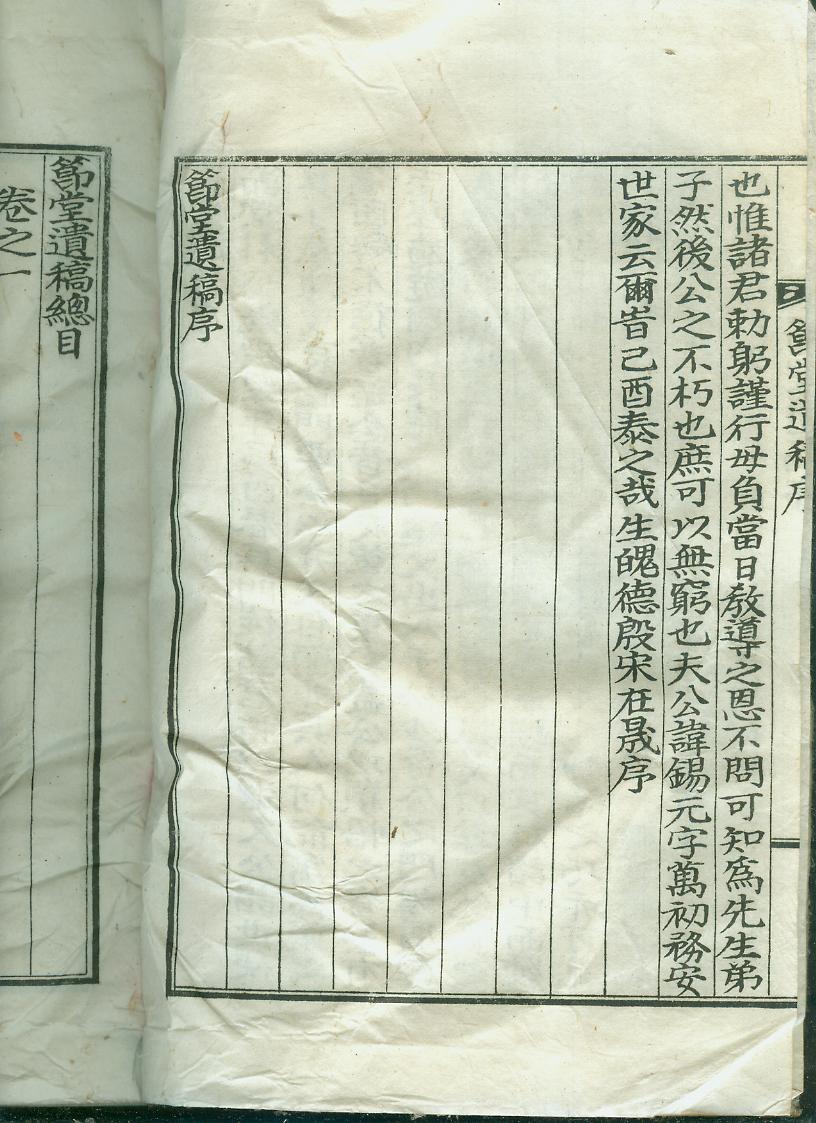 節堂遺稿序
也惟諸君勅躬謹行毋負當日敎導之恩不問可知爲先生弟
子然後公之不朽也庶可以無窮也夫公諱錫元字萬初務安
世家云爾旹己酉泰之哉生魄德殷宋在晟序
節堂遺稿序
節堂遺稿總目
卷之一